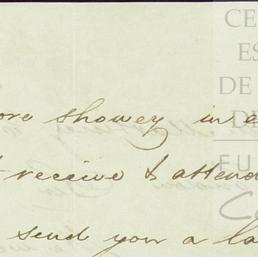 CE
ES
DE
DE
FU
ore showey in a
t receive & attend
send you a la